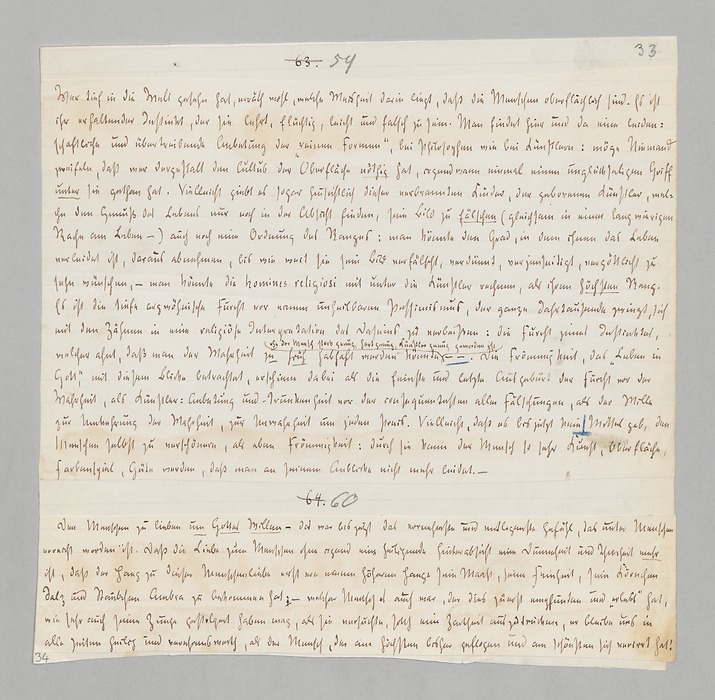 63. 59
33
Wer tief in die Welt gesehn hat, erräth wohl, welche Weisheit darin liegt, daß die Menschen oberflächlich sind. Es ist
ihr erhaltender Instinkt, der sie lehrt, flüchtig, leicht und falsch zu sein. Man findet hier und da eine leiden:
schaftliche und übertreibende Anbetung der „reinen Formen“, bei Philosophen wie bei Künstlern: möge Niemand
zweifeln, daß wer dergestalt den Cultus der Oberfläche nöthig hat, irgendwann einmal einen unglückseligen Griff
unter sie gethan hat. Vielleicht giebt es sogar hinsichtlich dieser verbrannten Kinder, der geborenen Künstler, wel-
che den Genuß des Lebens nur noch in der Absicht finden, sein Bild zu fälschen (gleichsam in einer langwierigen
Rache am Leben —) auch noch eine Ordnung des Ranges: man könnte den Grad, in dem ihnen das Leben
verleidet ist, daraus abnehmen, bis wie weit sie sein Bild verfälscht, verdünnt, verjenseitigt, vergöttlicht zu
sehn wünschen, — man könnte die homines religiosi mit unter die Künstler rechnen, als ihren höchsten Rang.
Es ist die tiefe argwöhnische Furcht vor einem unheilbaren Pessimismus, der ganze Jahrtausende zwingt, sich
mit den Zähnen in eine religiöse Interpretation des Daseins zu verbeißen: die Furcht jenes Instinktes,
ehe der Mensch stark genug, hart genug, Künstler genug geworden ist
welcher ahnt, daß man der Wahrheit zu früh habhaft werden könnte, — —. Die Frömmigkeit, das „Leben in
Gott“ mit diesem Blicke betrachtet, erschiene dabei als die feinste und letzte Ausgeburt der Furcht vor der
Wahrheit, als Künstler-Anbetung und -Trunkenheit vor der consequentesten aller Fälschungen, als der Wille
zur Umkehrung der Wahrheit, zur Unwahrheit um jeden Preis. Vielleicht, daß es bis jetzt kein Mittel gab, den
Menschen selbst zu verschönern, als eben Frömmigkeit: durch sie kann der Mensch so sehr Kunst, Oberfläche,
Farbenspiel, Güte werden, daß man an seinem Anblicke nicht mehr leidet. —
64. 60
Den Menschen zu lieben um Gottes Willen — das war bis jetzt das vornehmste und entlegenste Gefühl, das unter Menschen
erreicht worden ist. Daß die Liebe zum Menschen ohne irgend eine heiligende Hinterabsicht eine Dummheit und Thierheit mehr
ist, daß der Hang zu dieser Menschenliebe erst von einem höheren Hange sein Maaß, seine Feinheit, sein Körnchen
Salz und Stäubchen Ambra zu bekommen hat: — welcher Mensch es auch war, der dies zuerst empfunden und „erlebt“ hat,
wie sehr auch seine Zunge gestolpert haben mag, als sie versuchte, solch eine Zartheit auszudrücken, er bleibe uns in
alle Zeiten heilig und verehrenswerth, als der Mensch, der am höchsten bisher geflogen und am schönsten sich verirrt hat!
34